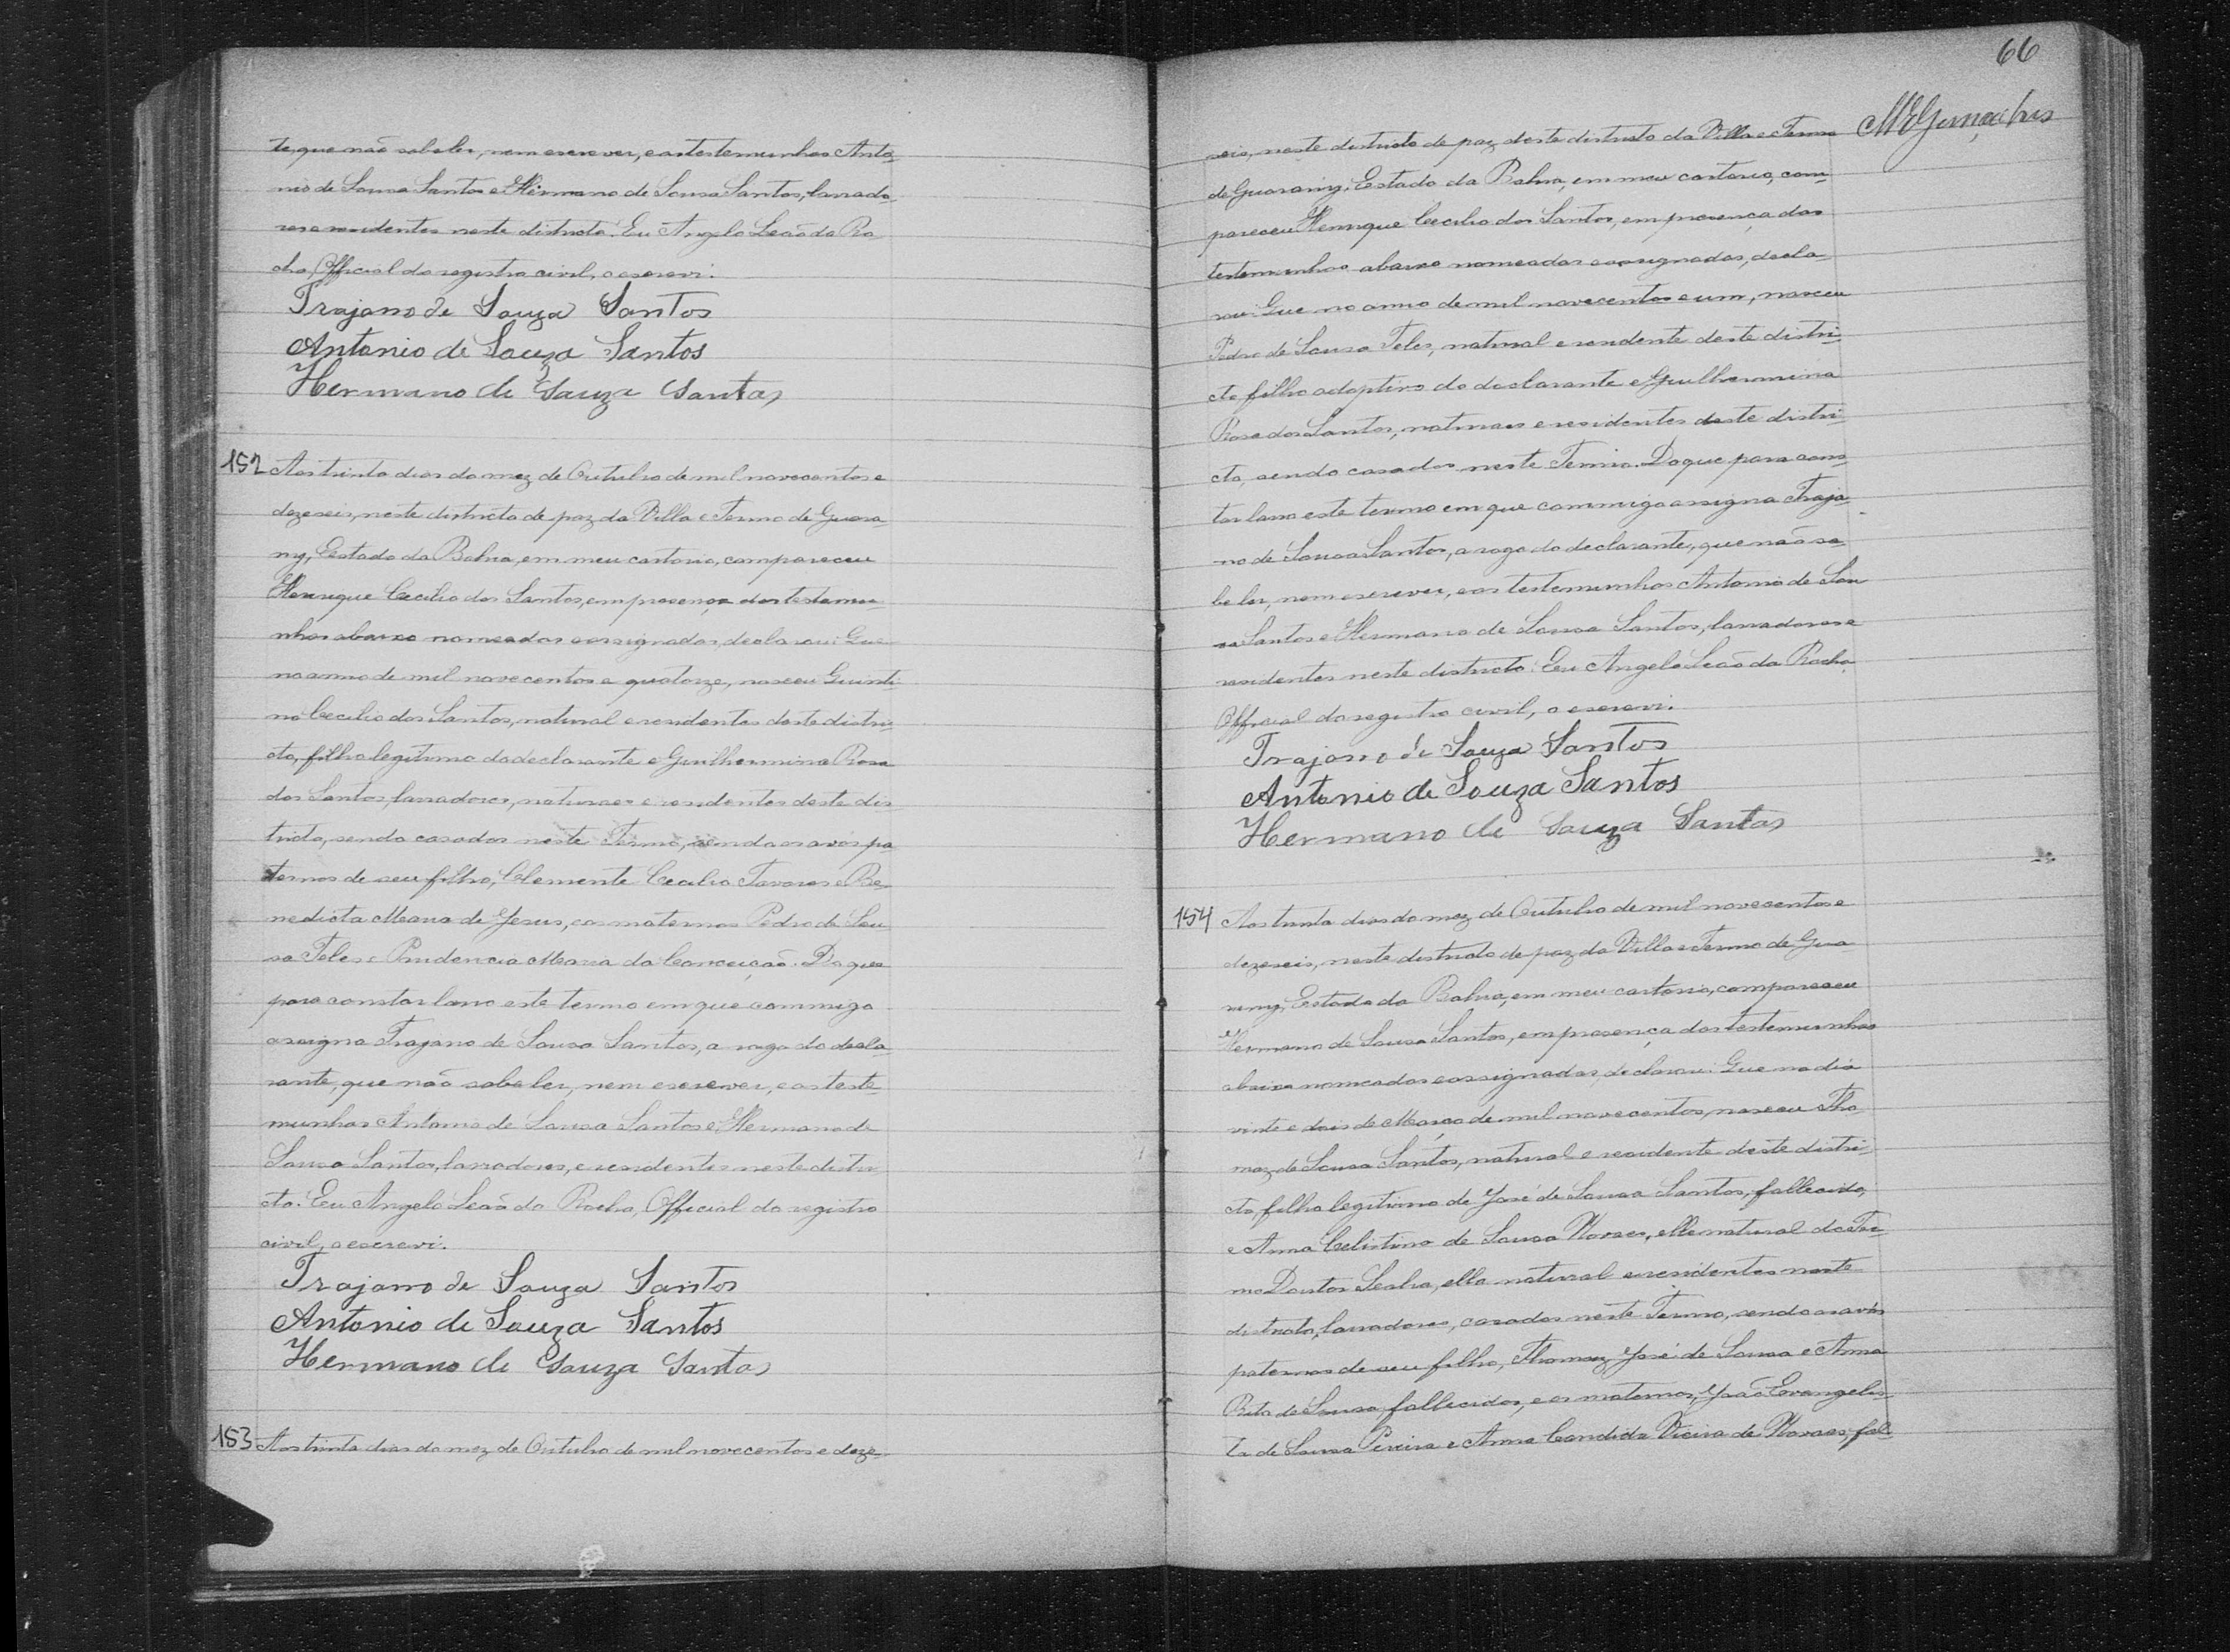 te, que não sabe ler, nem escrever, e as testemunhas Anto-
nio de Sousa Santos e Hermano de Sousa Santos, lavrado-
res e residentes neste districto. Eu Angelo Leão da Ro
cha, Official do registro civil, o escrevi.
Trajano de Souza Santos
Antonio de Souza Santos
Hermano de Souza Santos
152 Aos trinta dias do mez de Outubro de mil novecentos e
dezeseis, neste districto de paz da Villa e Termo de Guara
ny, Estado da Bahia, em meu cartorio, compareceu
Henrique Cecilio dos Santos, em presença das testemu-
nhas abaixo nomeadas e assignadas, declarou: Que
no anno de mil novecentos e quatorze, nasceu Quinti-
no Cecilio dos Santos, natural e residentes deste distri-
cto, filho legitimo do declarante e Guilhermina Rosa
dos Santos, lavradores, naturaes e residentes deste dis
tricto, sendo casados neste Termo, sendo os avós pa
ternos de seu filho, Clemente Cecilio Tavares e Be-
nedicta Maria de Jesus, e os maternos Pedro de Sou
sa Teles e Prudencia Maria da Conceição. Do que
para constar lavro este termo em que commigo
assigna Trajano de Sousa Santos, a rogo do decla-
rante, que não sabe ler, nem escrever, e as teste-
munhas Antonio de Sousa Santos e Hermano de
Sousa Santos, lavradores, e residentes neste distri-
cto. Eu Angelo Leão da Rocha, Official do registro
civil, o escrevi.
Trajano de Souza Santos
Antonio de Souza Santos
Hermano de Souza Santos
153 Aos trinta dias do mez de Outubro de mil novecentos e deze-
66
seis, neste districto de paz deste districto da Villa e Termo
de Guarany, Estado da Bahia, em meu cartorio, com-
pareceu Henrique Cecilio dos Santos, em presença das
testemunhas abaixo nomeadas e assignadas, decla-
rou: Que no anno de mil novecentos e um, nasceu
Pedro de Sousa Teles, natural e residente deste distri-
cto, filho adoptivo do declarante e Guilhermina
Rosa dos Santos, naturaes e residentes deste distri-
cto, sendo casados neste Termo. Do que para cons-
tar lavro este termo em que commigo assigna Traja-
no de Sousa Santos, a rogo do declarante, que não sa-
be ler, nem escrever, e as testemunhas Antonio de Sou
sa Santos e Hermano de Sousa Santos, lavradores e
residentes neste districto. Eu Angelo Leão da Rocha,
Official do registro civil, o escrevi.
Trajano de Souza Santos
Antonio de Souza Santos
Hermano de Souza Santos
154 Aos trinta dias do mez de Outubro de mil novecentos e
dezeseis, neste districto de paz da Villa e Termo de Gua
rany, Estado da Bahia, em meu cartorio, compareceu
Hermano de Sousa Santos, em presença das testemunhas
abaixo nomeadas e assignadas, declarou: Que no dia
vinte e dois de Março de mil novecentos, nasceu Tho
maz de Sousa Santos, natural e residente deste distri-
cto, filho legitimo de José de Sousa Santos, fallecido,
e Anna Celistina de Sousa Novaes, elle natural do Ter
mo Doutor Seabra, ella natural e residentes neste
districto, lavradores, casados neste Termo, sendo os avós
paternos de seu filho, Thomaz José de Sousa e Anna
Rita de Sousa, fallecidos, e os maternos, João Evangelis-
ta de Sousa Pereira e Anna Candida Vieira de Novaes, fal-